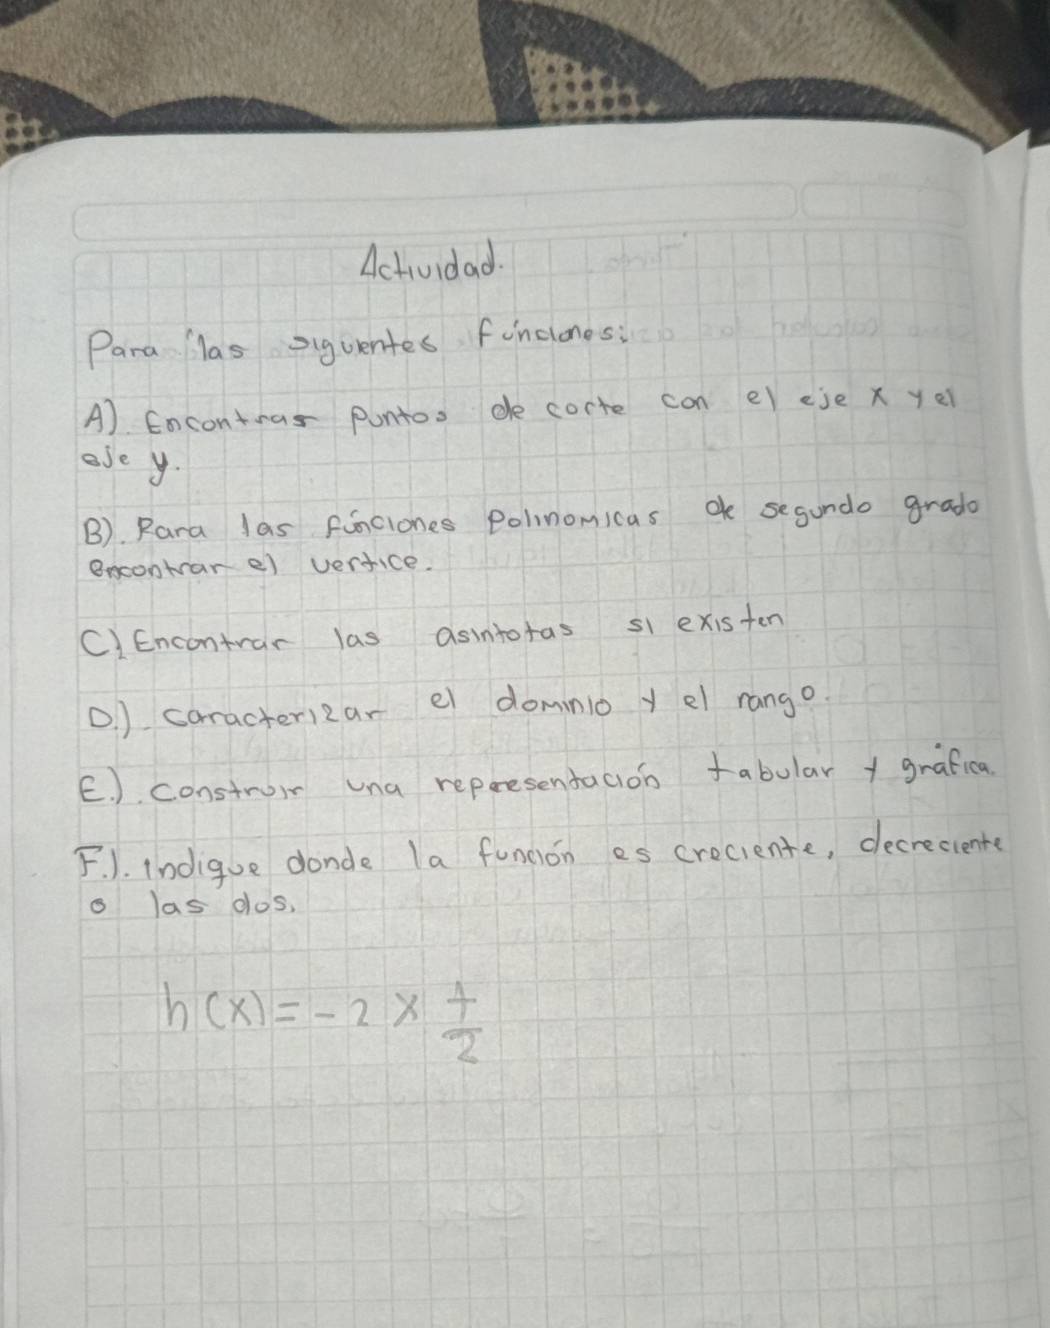 Actividad.
Para las siguientes funciones:
A). Encontrar puntos de corte con el eje x y el
eje y.
B). Para las funciones Polinomicas de segundo grado
encontrar el vertice.
C) Encontrar las asintotas si existen
D.). caracterizar el dominio y el rango.
E.). Construir una representación tabular y gráfica.
F.). indique donde la función es creciente, decreciente
o las dos.
h(x) = -2 x 1/2